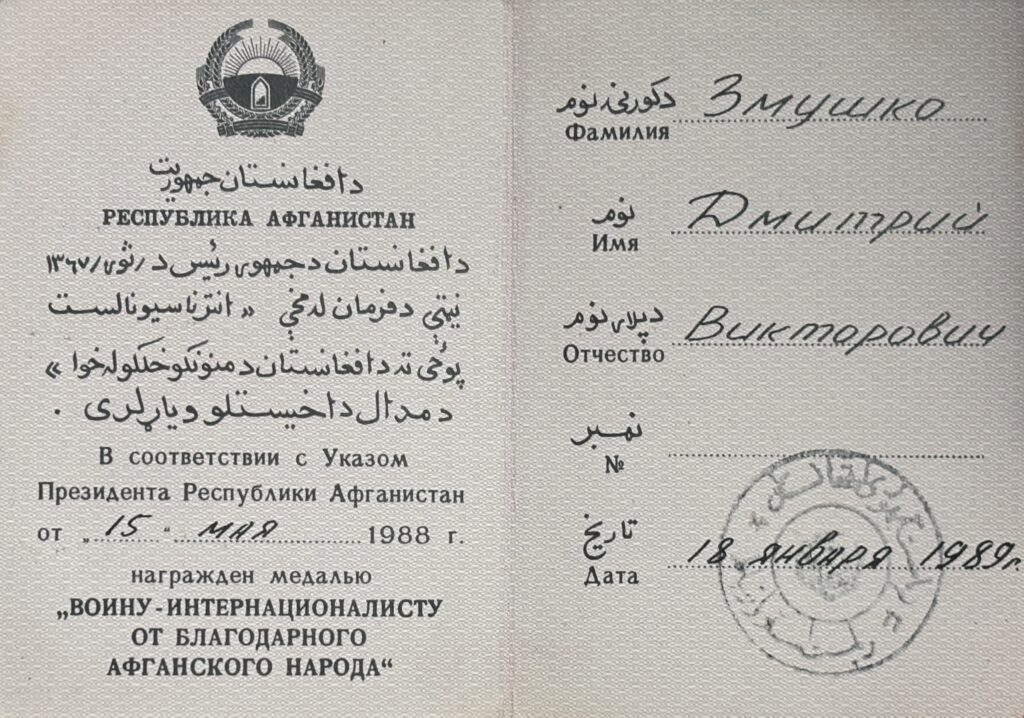 دافغانستان جمهوریت
РЕСПУБЛИКА АФГАНИСТАН
دافغانستان دجمهوری رئیس د /ثور/ ۱۳۶۷
نیټې دفرمان له مخې « انترناسیونالست
پوځی ته دافغانستان دمنونکوخلکو له خوا »
دمدال داخیستلو ویاړ لری .
В соответствии с Указом
Президента Республики Афганистан
от „15“ мая 1988 г.
награжден медалью
„ВОИНУ-ИНТЕРНАЦИОНАЛИСТУ
ОТ БЛАГОДАРНОГО
АФГАНСКОГО НАРОДА“
دکورنۍ نوم Змушко
Фамилия
نوم Дмитрий
Имя
دپلار نوم Викторович
Отчество
نمبر
№
تاریخ 18 января 1989г.
Дата